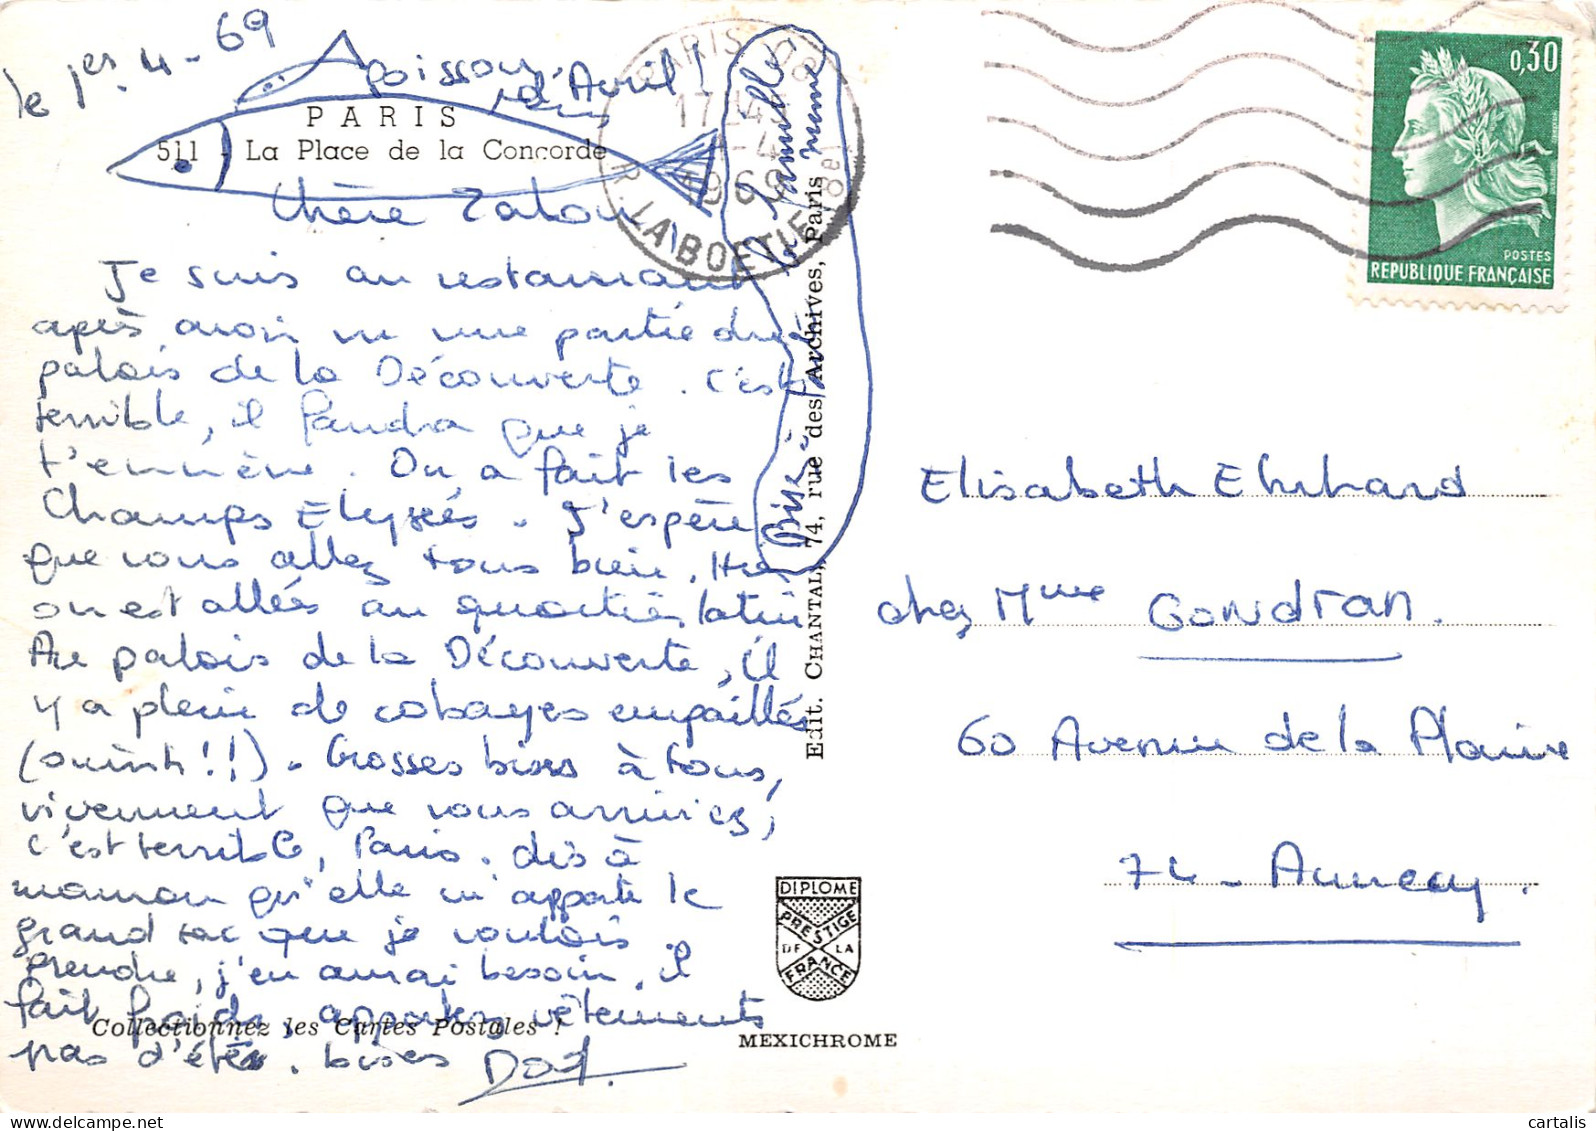 le 1er. 4 - 69
poisson d'Avril !
PARIS
511 - La Place de la Concorde
Chère Zabou
Je suis au restaurant
après avoir vu une partie du
palais de la Découverte. C'est
terrible, il faudra que je
t'emmène. On a fait les
Champs Elysées. J'espère
que vous allez tous bien. Hier
on est allés au quartier latin
Au palais de la Découverte, il
y a plein de cobayes empaillés
(ouinh!!). Grosses bises à tous,
vivement que vous arriviez,
c'est terrible, Paris. dis à
maman qu'elle m'apporte le
grand sac que je voulais
prendre, j'en aurai besoin, il
fait froid, apportez vêtements
Collectionnez les Cartes Postales !
pas d'été. bises
Bise à la famille
même
Edit. CHANTAL, 74, rue des Archives, Paris
PARIS 08
17H45
1-4
1969
R. LA BOETIE (8e)
0,30
POSTES
REPUBLIQUE FRANÇAISE
Elisabeth Ehrhard
chez Mme Gondran.
60 Avenue de la Plaine
74 - Annecy.
DIPLOME
PRESTIGE
DE LA
FRANCE
MEXICHROME
cartalis
www.delcampe.net